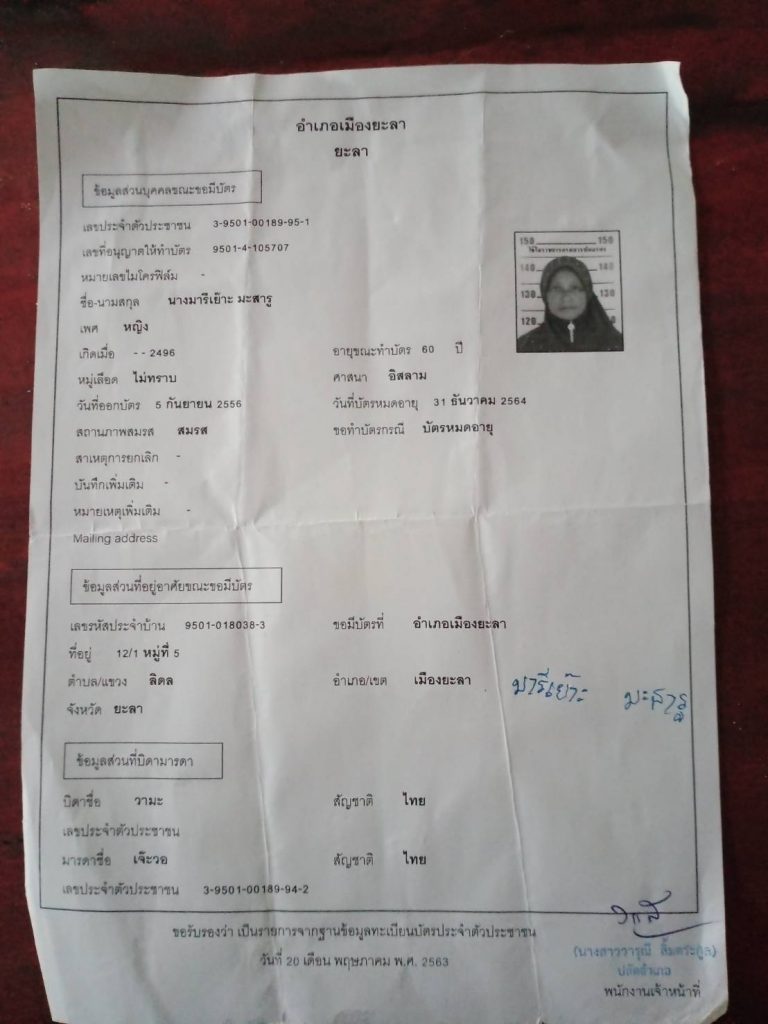 อำเภอเมืองยะลา
ยะลา
ข้อมูลส่วนบุคคลขณะขอมีบัตร
เลขประจำตัวประชาชน 3-9501-00189-95-1
เลขที่อนุญาตให้ทำบัตร 9501-4-105707
หมายเลขไมโครฟิล์ม -
ชื่อ-นามสกุล นางมารีเย๊าะ มะสารู
เพศ หญิง
เกิดเมื่อ - - 2496 อายุขณะทำบัตร 60 ปี
หมู่เลือด ไม่ทราบ ศาสนา อิสลาม
วันที่ออกบัตร 5 กันยายน 2556 วันที่บัตรหมดอายุ 31 ธันวาคม 2564
สถานภาพสมรส สมรส ขอทำบัตรกรณี บัตรหมดอายุ
สาเหตุการยกเลิก -
บันทึกเพิ่มเติม -
หมายเหตุเพิ่มเติม -
Mailing address
150 150
140 140
130 130
120
ข้อมูลส่วนที่อยู่อาศัยขณะขอมีบัตร
เลขรหัสประจำบ้าน 9501-018038-3 ขอมีบัตรที่ อำเภอเมืองยะลา
ที่อยู่ 12/1 หมู่ที่ 5
ตำบล/แขวง ลิดล อำเภอ/เขต เมืองยะลา
จังหวัด ยะลา
มารีเย๊าะ มะสารู
ข้อมูลส่วนที่บิดามารดา
บิดาชื่อ วามะ สัญชาติ ไทย
เลขประจำตัวประชาชน
มารดาชื่อ เจ๊ะวอ สัญชาติ ไทย
เลขประจำตัวประชาชน 3-9501-00189-94-2
ขอรับรองว่า เป็นรายการจากฐานข้อมูลทะเบียนบัตรประจำตัวประชาชน
วันที่ 20 เดือน พฤษภาคม พ.ศ. 2563
(นางสาววารุณี ลิ้มตระกูล)
ปลัดอำเภอ
พนักงานเจ้าหน้าที่